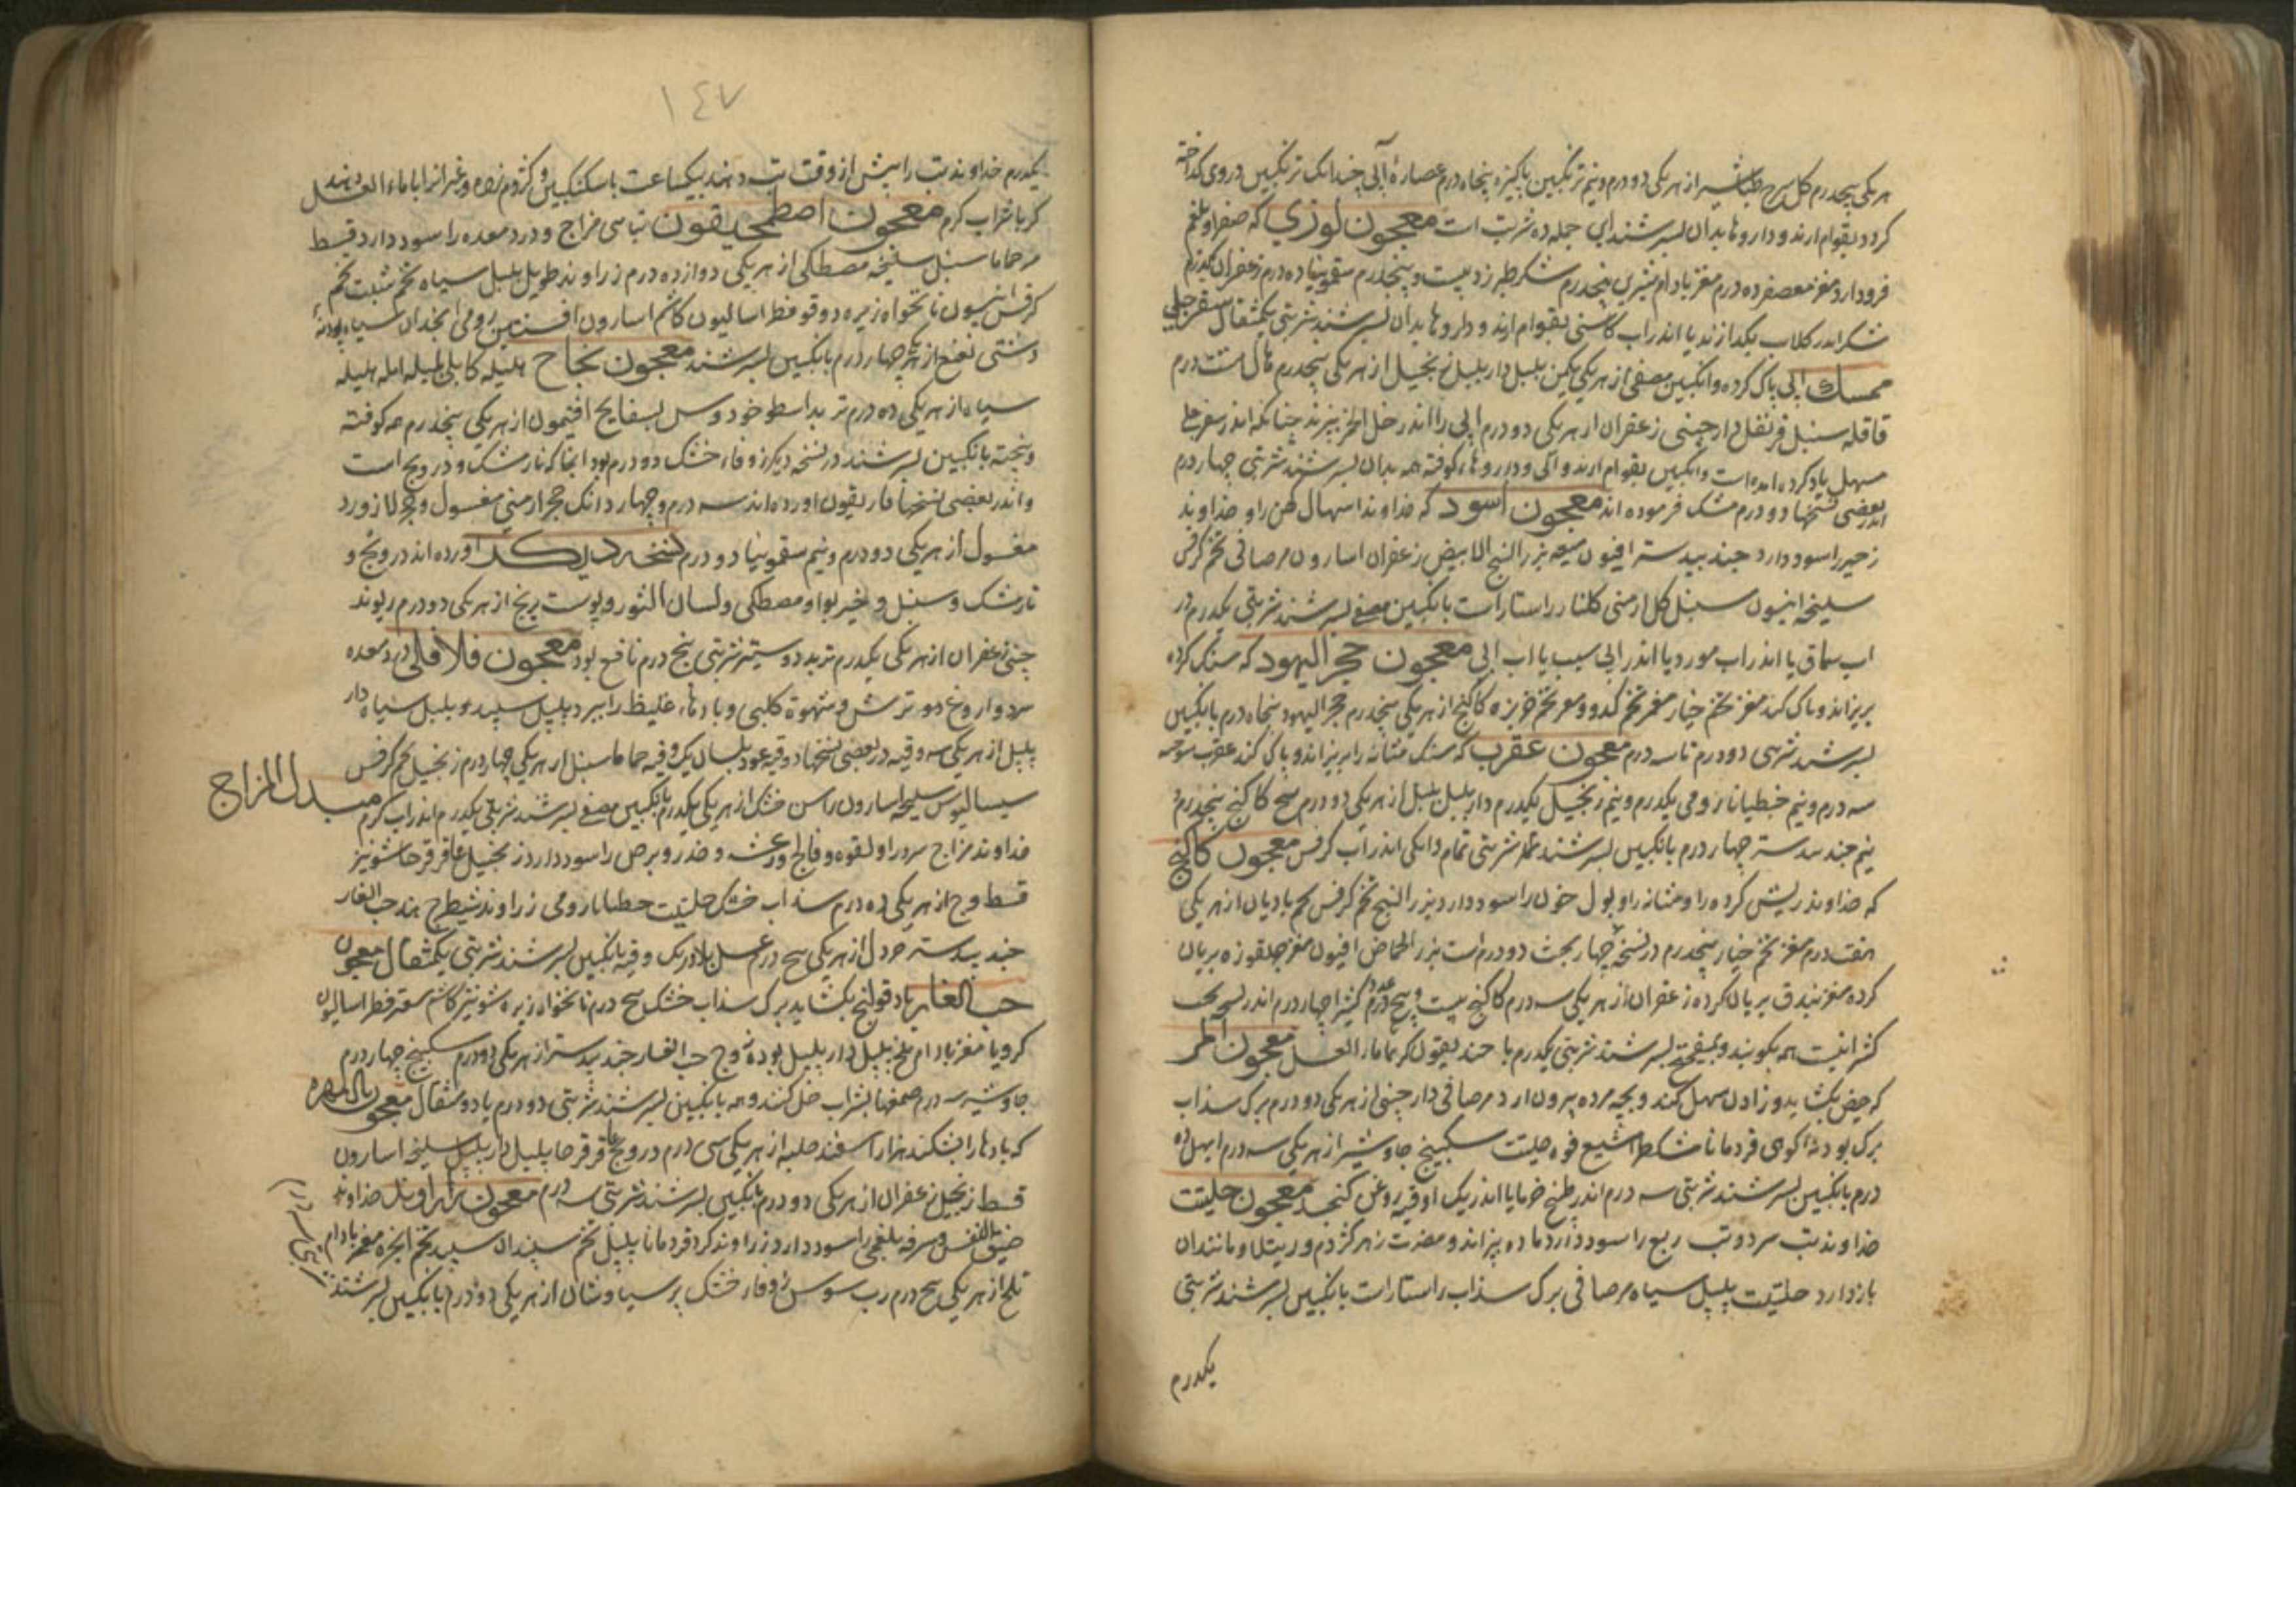 هر یکی پنجدرم کل سرخ طباشیر از هر یکی دو درم و نیم ترنکبین پاکیزه پنجاه درم عصارهٔ آبی چندانک ترنکبین دروی کداخته
کردد بقوام ارند و داروها بدان بسرشند این جمله ده شربت است معجون لوزی که صفرا و بلغم
فرود ارد مغز معصفر ده درم مغز بادام شیرین پنجدرم شکر طبرزد بیست و پنجدرم سقمونیا ده درم زعفران یکدرم
شکر اندر کلاب بکدازند یا اندر اب کاسنی بقوام ارند و داروها بدان بسرشند شربتی یکمثقال سفرجلی
ممسک ابی پاک کرده و انکبین مصفی از هر یکی یکمن بلبل دار بلبل زنجبیل از هر یکی پنجدرم هال هشت درم
قاقله سنبل قرنفل دارچینی زعفران از هر یکی دو درم ابی را اندر خل الخمر بپزند چنانکه اندر سفرجلی
مسهل یاد کرده امده است و انکبین بقوام ارند و ابی و داروهاء کوفته همه بدان بسرشند شربتی چهار درم
اندر بعضی نسختها دو درم مشک فرموده اند معجون اسود که خداوند اسهال کهن را و خداوند
زحیر را سود دارد جند بیدستر افیون میعه بزر البنج الابیض زعفران اسارون مر صافی تخم کرفس
سلیخه انیسون سنبل کل ارمنی کلنار راستاراست بانکبین مصفی بسرشند شربتی یکدرم در
اب سماق یا اندر اب مورد یا اندر ابی سیب یا اب ابی معجون حجر الیهود که سنک کرده
بریزاند و پاک کند مغز تخم خیار مغز تخم کدو و مغز تخم خربزه کاکنج از هر یکی پنجدرم حجر الیهود پنجاه درم بانکبین
بسرشند شربتی دو درم تا سه درم معجون عقرب که سنک مثانه را بریزاند و پاک کند عقرب سوخته
سه درم و نیم جنطیانا رومی یکدرم و نیم زنجبیل یکدرم دار بلبل بلبل از هر یکی دو درم کاکنج پنجدرم و
نیم جند بیدستر چهار درم بانکبین بسرشند شربتی تمام دانکی اندر اب کرفس معجون کاکنج
که خداوند ریش کرده را و مثانه را و بول خون را سود دارد بزر البنج تخم کرفس تخم بادیان از هر یکی
هفت درم مغز تخم خیار پنجدرم در نسخهٔ چهار بخت دو درم است بزر الحماض افیون مغز جلغوزه بریان
کرده مغز فندق بریان کرده زعفران از هر یکی سه درم کاکنج بیست و پنج عدد کتیرا چهار درم اندر نسخه
کتیرا نیست همه بکوبند و بمیفختج بسرشند شربتی یکدرم با خندیقون کرم یا ماء العسل معجون المر
که حیض بکشاید و زادن سهل کند و بچه مرده بیرون ارد مر صافی دارچینی از هر یکی دو درم برک سذاب
برک بودنه کوهی قردمانا مشکطرامشیع فوه حلتیت سکبینج جاوشیر از هر یکی سه درم ابهل ده
درم بانکبین بسرشند شربتی سه درم اندر طبیخ خرما یا اندر یک اوقیه روغن کنجد معجون حلتیت
خداوند تب سرد و تب ربع را سود دارد ماده بپزاند و مضرت زهر کژدم و رتیلا و مانند ان
بازدارد حلتیت پلپل سیاه مر صافی برک سذاب راستاراست بانکبین بسرشند شربتی
یکدرم
١٤٧
یکدرم خداوند تب را پیش از وقت تب دهند بیکساعت با سکنکبین و کژدم زده و غیر انرا با ماء العسل دهند
کر با شراب کرم معجون اصطمحیقون تباسی مزاج و درد معده را سود دارد قسط
مر حماما سنبل سلیخه مصطکی از هر یکی دوازده درم زراوند طویل بلبل سیاه تخم شبت تخم
کرفس انیسون نانخواه زیره دوقو فطراسالیون کاشم اسارون افسنتین رومی انجدان سیاه پودنهٔ
دشتی نعنع از هر یکی چهار درم بانکبین بسرشند معجون نجاح هلیله کابلی بلیله امله هلیله
سیاه از هر یکی ده درم تربد اسطوخودوس بسفایج افتیمون از هر یکی پنجدرم همه کوفته
و بیخته بانکبین بسرشند در نسخه دیکر زوفاء خشک دو درم بود انجا که نارمشک و درونج است
و اندر بعضی نسختها غاریقون اورده اند سه درم و چهار دانک حجر ارمنی مغسول و حجر لازورد
مغسول از هر یکی دو درم و نیم سقمونیا دو درم نسخه دیکر اورده اند درونج و
نارمشک و سنبل و خیربوا و مصطکی و لسان الثور و پوست ترنج از هر یکی دو درم ریوند
چینی زعفران از هر یکی یکدرم تربد دو ستیر شربتی پنج درم نافع بود معجون فلافلی درد معده
سرد و اروغ دو ترش و شهوة کلبی و بادهاء غلیظ را ببرد پلپل سپید و پلپل سیاه دار
پلپل از هر یکی سه وقیه در بعضی نسختها دو وقیه عود بلسان یک وقیه حماما سنبل از هر یکی چهار درم زنجبیل تخم کرفس
سیسالیوس سلیخه اسارون راسن خشک از هر یکی یکدرم بانکبین مصفی بسرشند شربتی یکدرم اندر اب کرم مبدل المزاج
خداوند مزاج سرد را و لقوه و فالج و رعشه و خدر و برص را سود دارد زنجبیل عاقرقرحا شونیز
قسط وج از هر یکی ده درم سذاب خشک حلتیت جنطیانا رومی زراوند شیطرج هند حب الغار
جند بیدستر خردل از هر یکی پنج درم عسل بلادر یک وقیه بانکبین بسرشند شربتی یکمثقال معجون
حب الغار باد قولنج بکشاید برک سذاب خشک پنج درم نانخواه زیره شونیز کاشم سعتر فطراسالیون
کرویا مغز بادام تلخ پلپل دار پلپل بودنه وج حب الغار جند بیدستر از هر یکی دو درم سکبینج چهار درم
جاوشیر سه درم صمغها بشراب حل کنند و همه بانکبین بسرشند شربتی دو درم یا دو مثقال معجون
که بادها را بشکند هزار اسفند حلبه از هر یکی سی درم درونج عاقرقرحا پلپل دار پلپل سلیخه اسارون
قسط زنجبیل زعفران از هر یکی دو درم بانکبین بسرشند شربتی سه درم معجون زراوند خداوند
ضیق النفس و سرفه بلغمی را سود دارد زراوند کرد قردمانا پلپل تخم سپندان سپید تخم انجره مغز بادام
تلخ از هر یکی پنج درم رب سوس زوفاء خشک پرسیاوشان از هر یکی دو درم بانکبین بسرشند